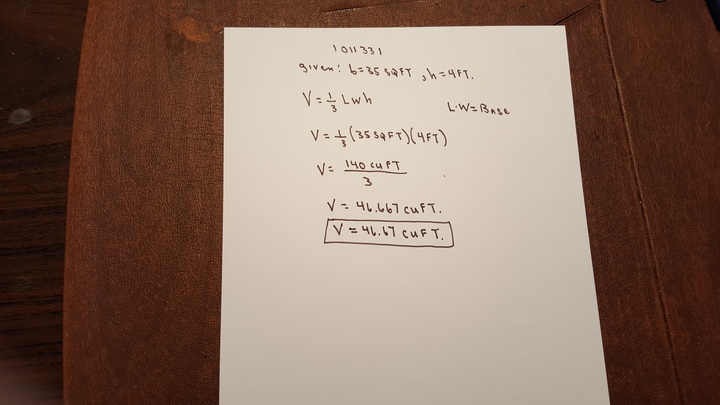 1011331
given: b=35 SQFT, h=4FT.
V = 1/3 Lwh
L·W=BASE
V = 1/3 (35 SQFT)(4FT)
V = 140 CU FT / 3
V = 46.667 CU FT.
V = 46.67 CU FT.